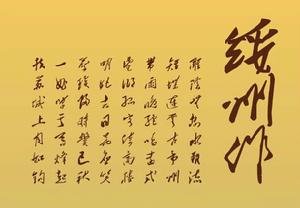 绥州作
雕阴无树水难流
雉堞连云古帝州
带雨晚驼鸣远戍
望乡孤客倚高楼
明妃去日花应笑
蔡琰归时鬓已秋
一曲单于暮烽起
扶苏城上月如钩